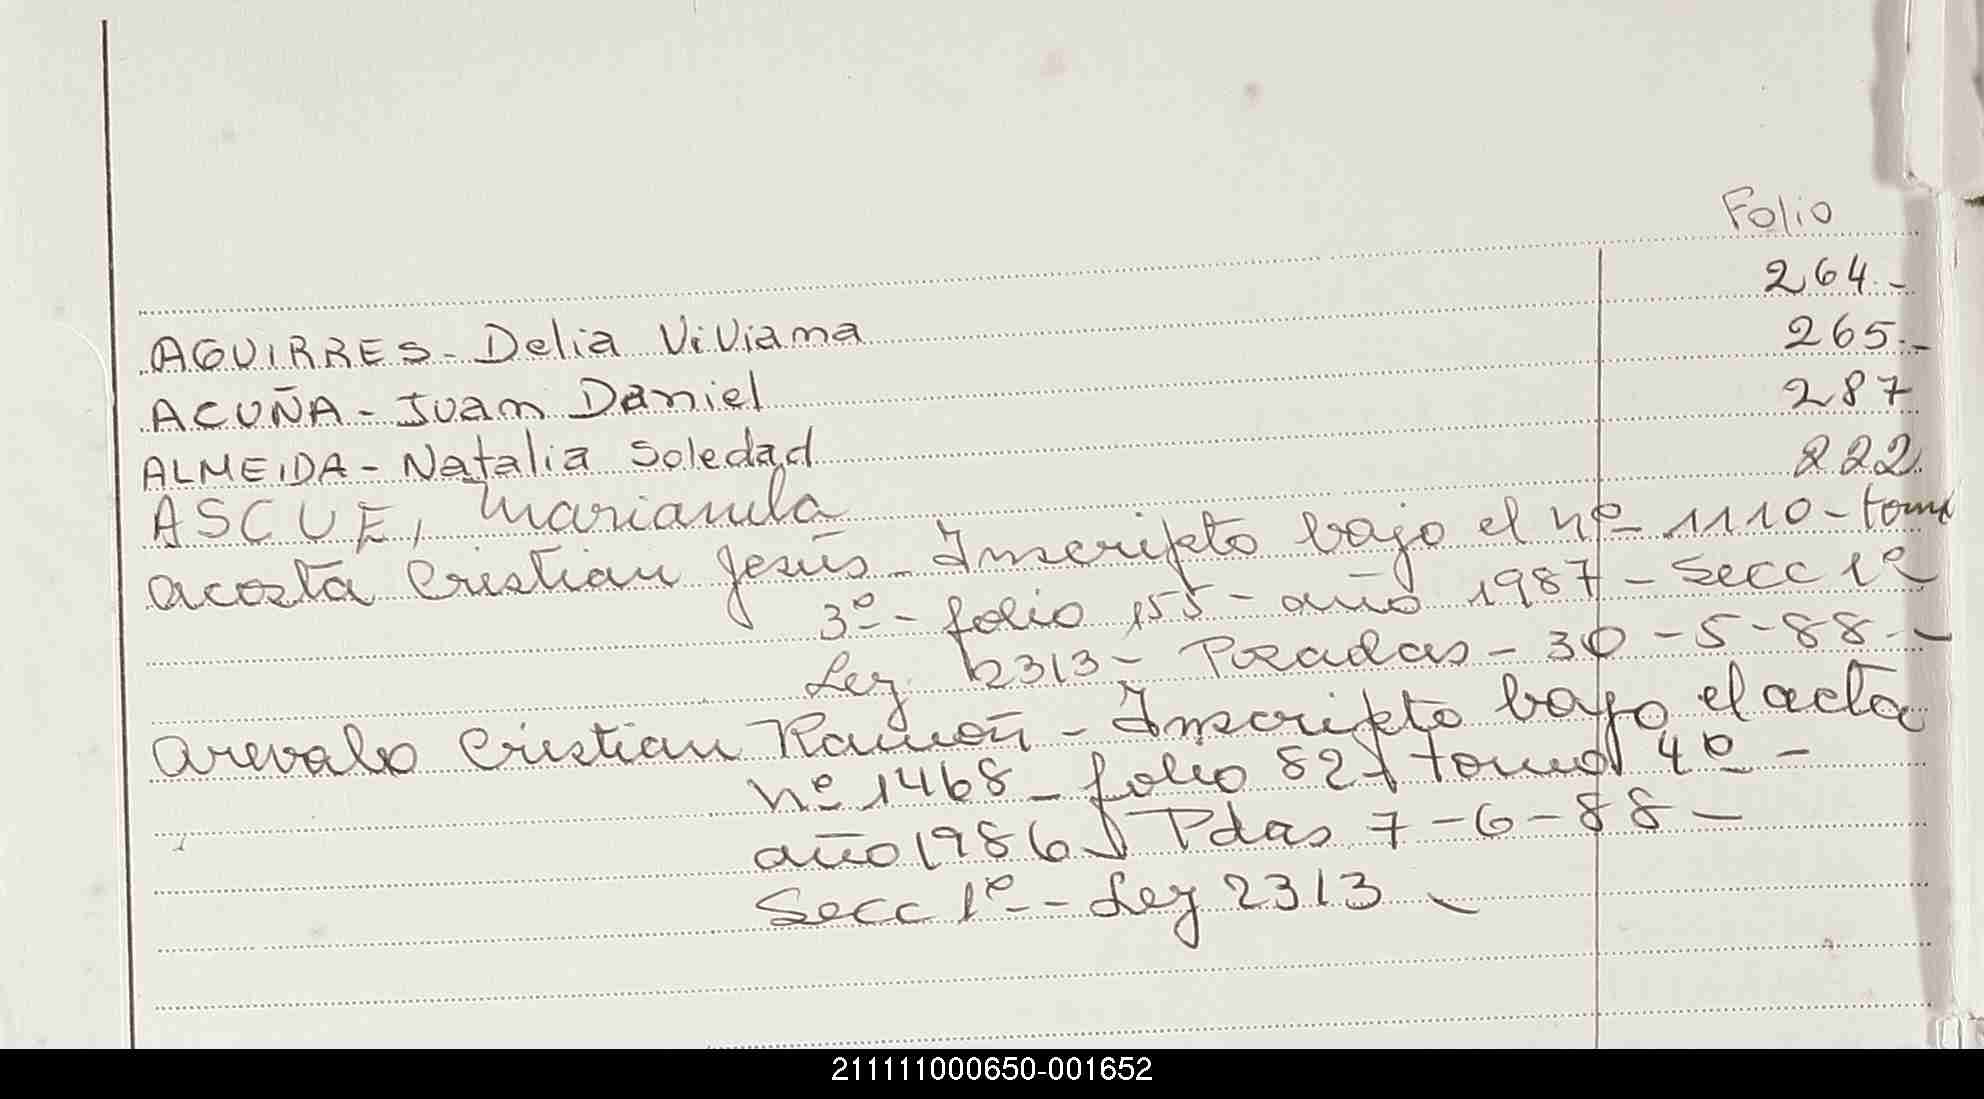 Folio
AGUIRRES - Delia Viviana 264.-
ACUÑA - Juan Daniel 265.-
ALMEIDA - Natalia Soledad 287
ASCUE, Marianela 222.
Acosta Cristian Jesús - Inscripto bajo el nº 1110 - tomo
3º - folio 155 - año 1987 - Secc 1º
Ley 2313 - Posadas - 30 - 5 - 88 -
Arevalo Cristian Ramón - Inscripto bajo el acta
nº 1468 - folio 82 tomo 4º -
año 1986 Pdas 7 - 6 - 88 -
Secc 1º - Ley 2313 -
211111000650-001652